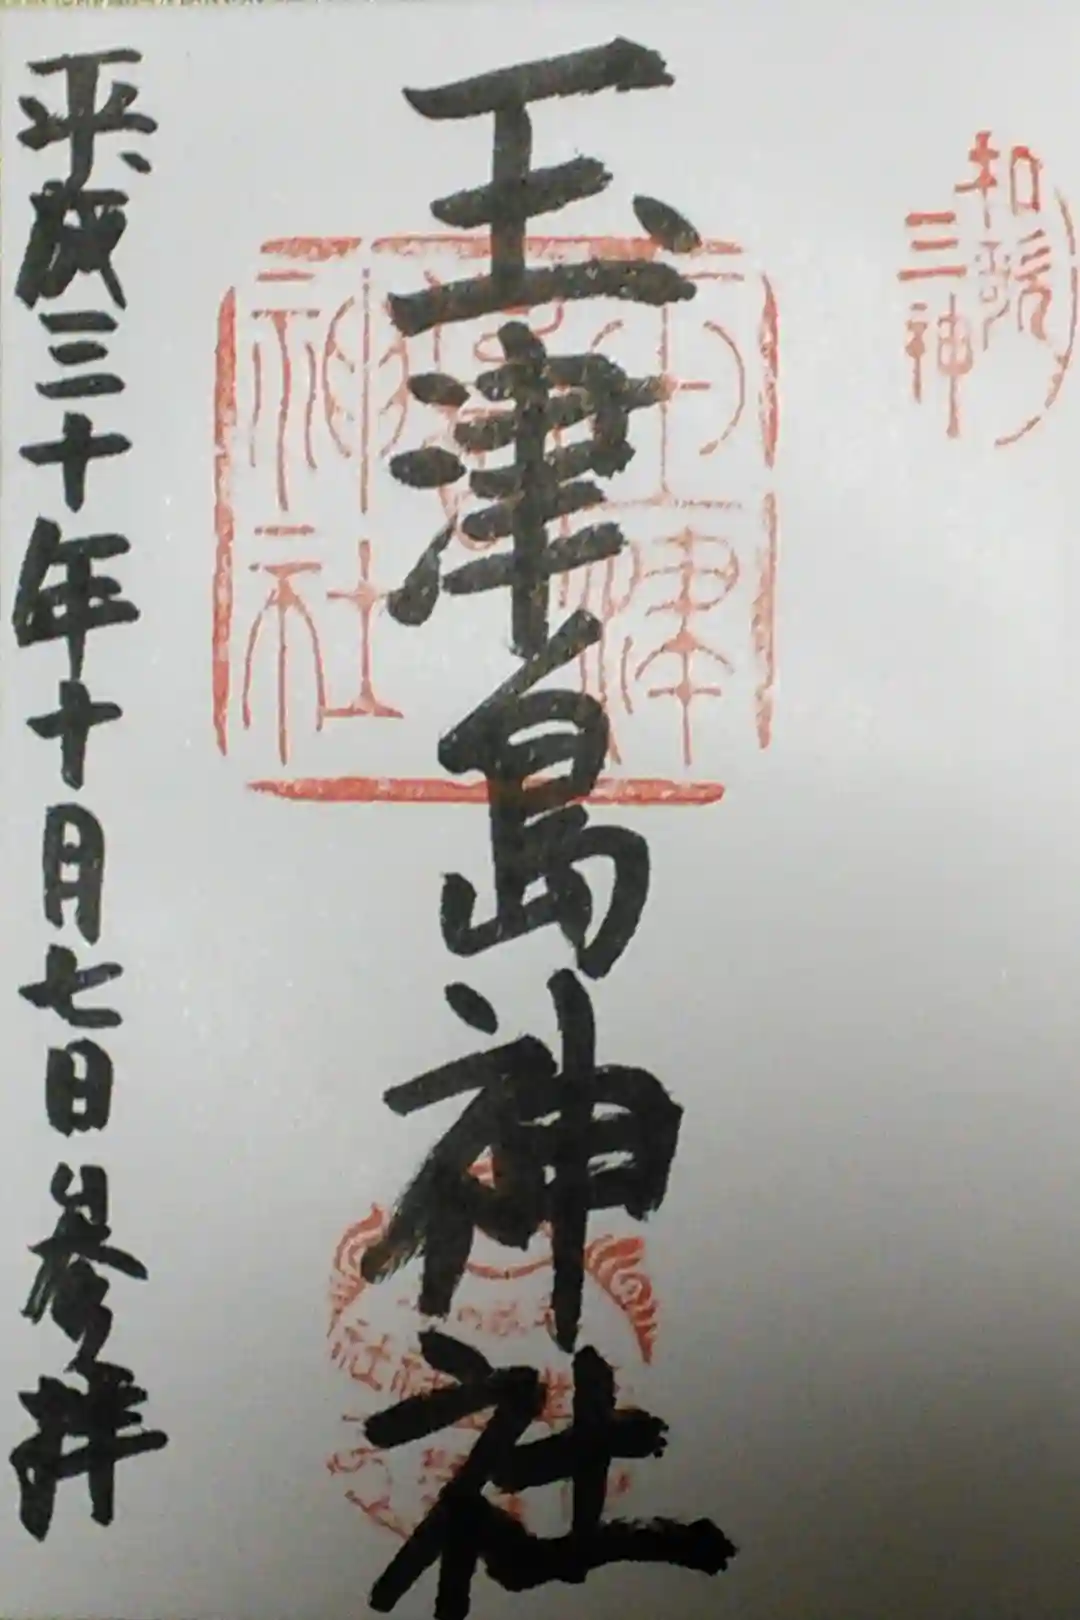 和歌
三神
玉津島神社
玉津島
神社
平成三十年十月七日参拝